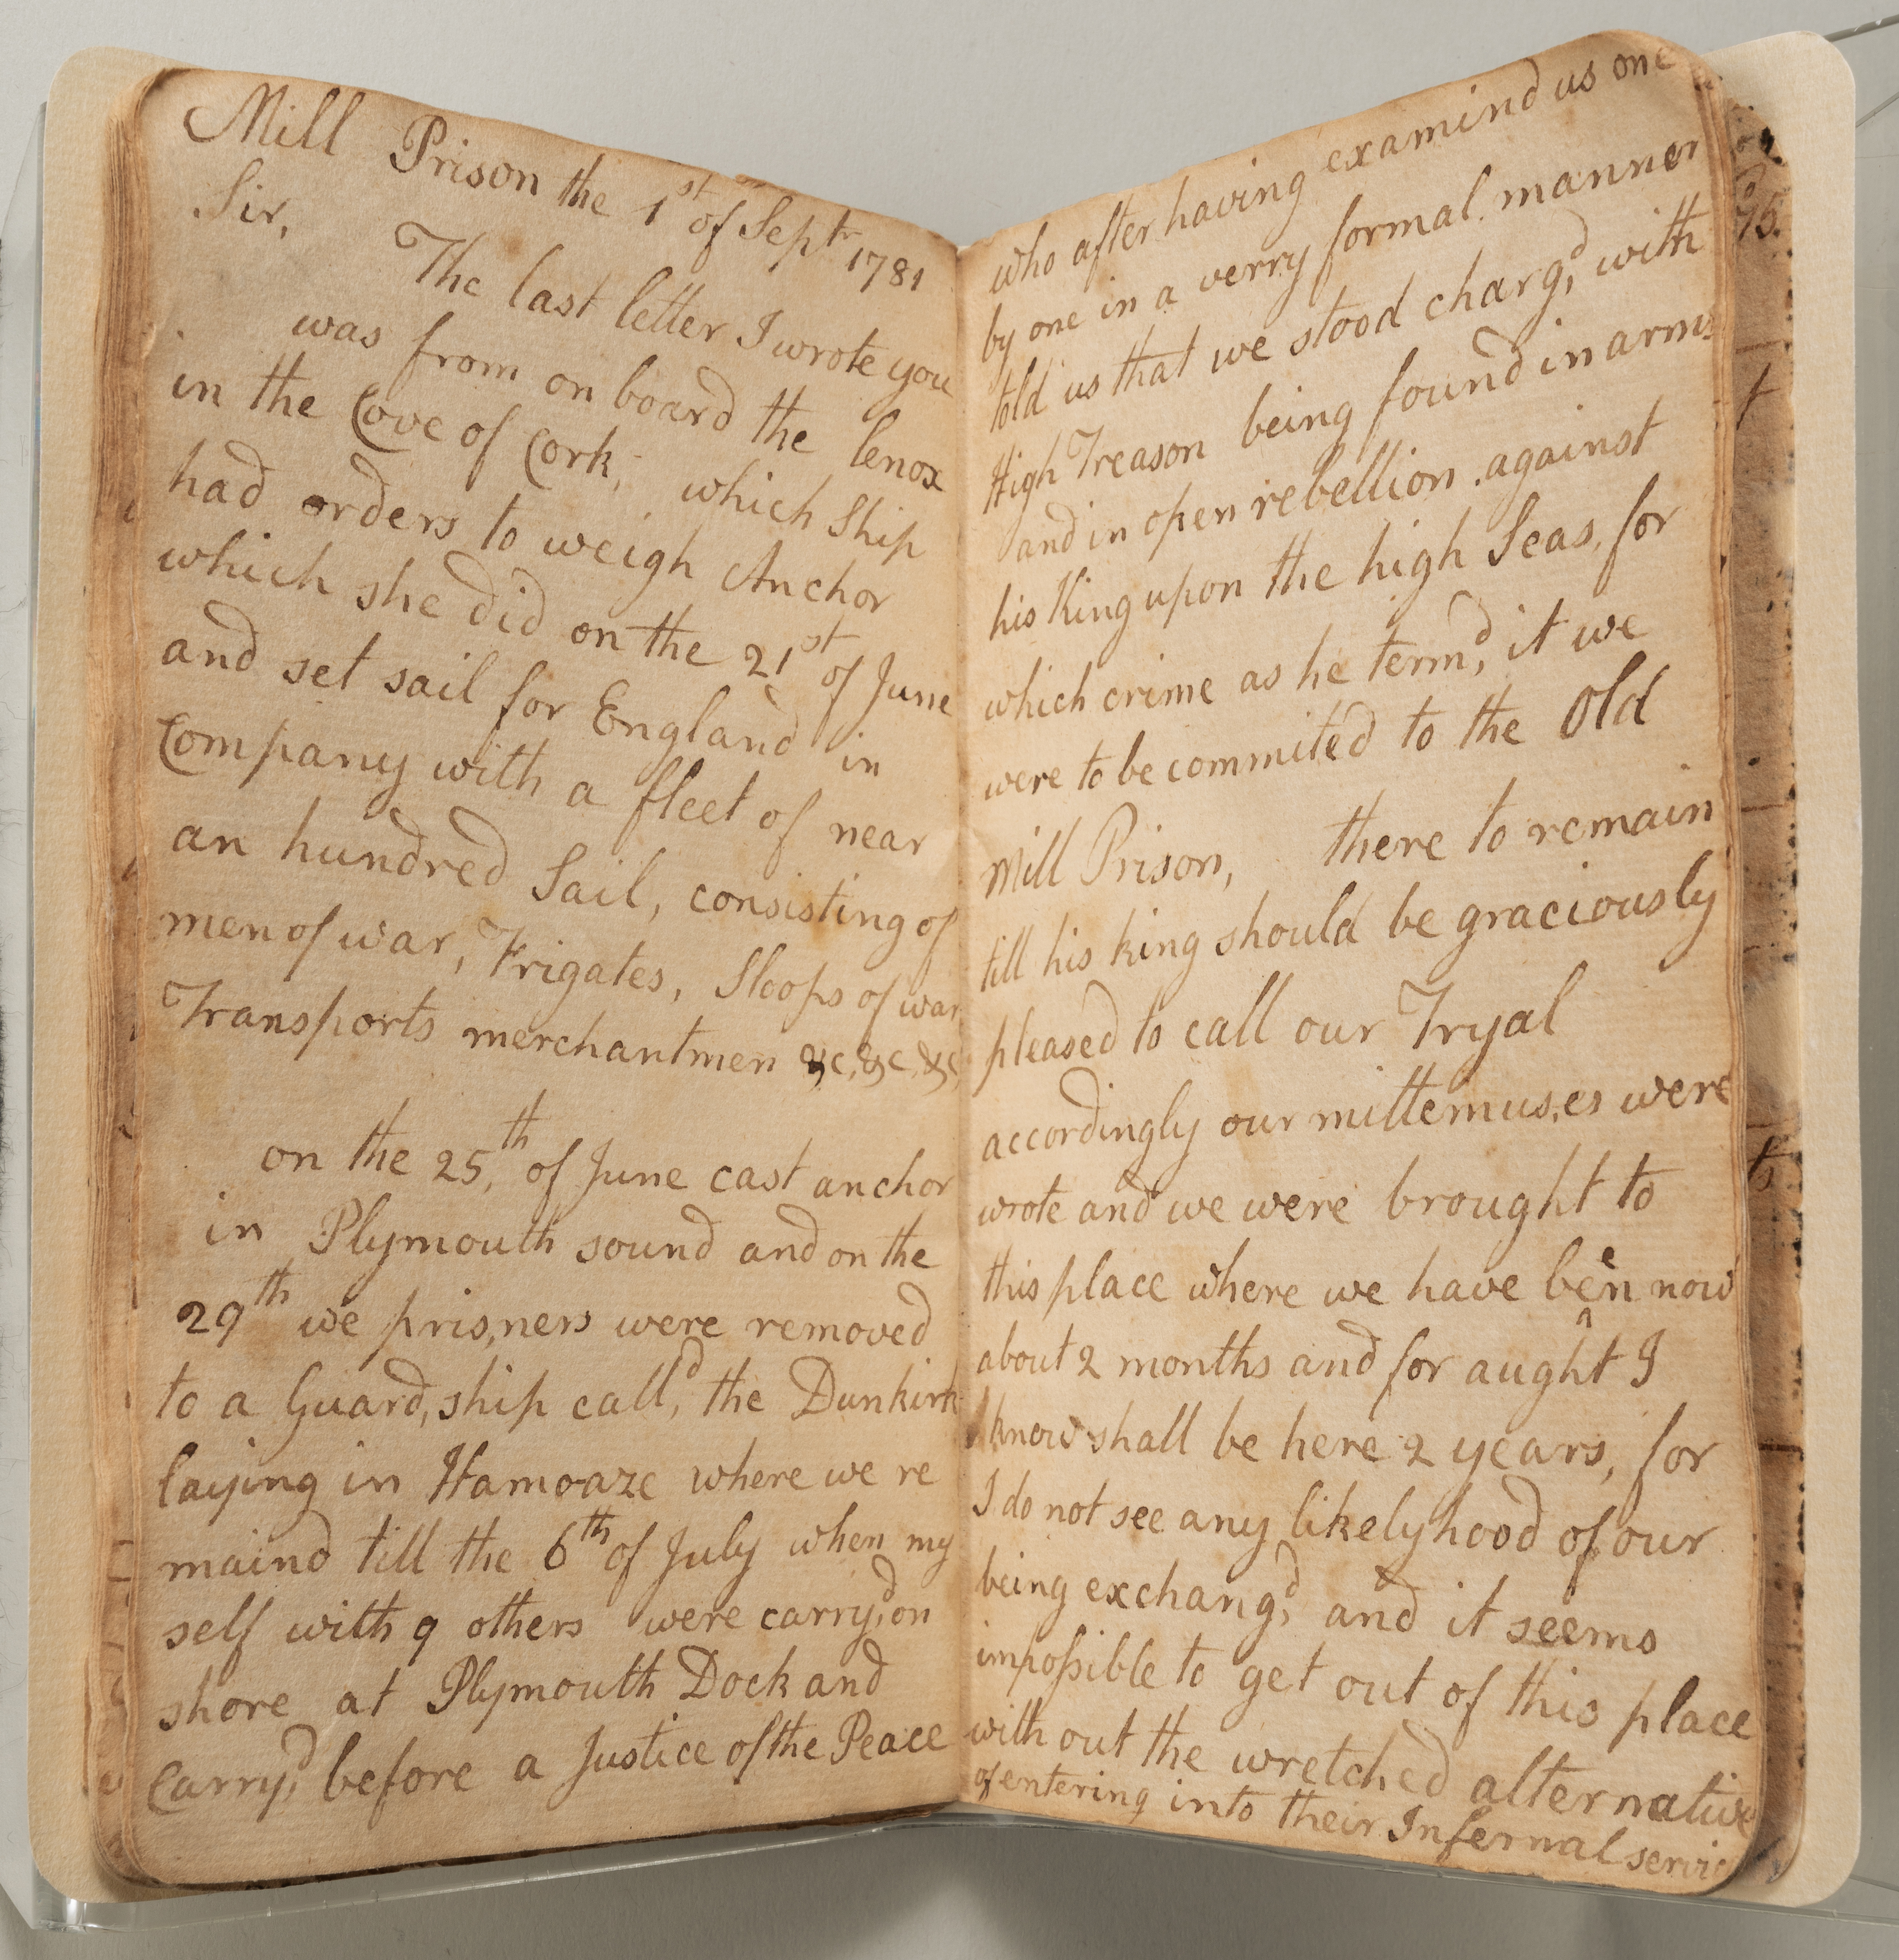 Mill Prison the 1st of Septr 1781
Sir,
The last letter I wrote you
was from on board the lenox
in the Cove of Cork, which Ship
had orders to weigh Anchor
which she did on the 21st of June
and set sail for England in
Company with a fleet of near
an hundred Sail, consisting of
men of war, Frigates, Sloops of war
Transports merchantmen &c, &c, &c,
on the 25,th of June cast anchor
in Plymouth sound and on the
29th we pris,ners were removed
to a Guard,ship call,d the Dunkirk
laying in Hamoaze where we re
maind till the 6th of July when my
self with 9 others were carry,d on
shore at Plymouth Dock and
Carry,d before a Justice of the Peace
who after having examind us one
by one in a verry formal manner
told us that we stood charg,d with
High Treason being found in arms
and in open rebellion against
his King upon the high Seas, for
which crime as he term,d it we
were to be commited to the Old
Mill Prison, there to remain
till his king should be graciously
pleased to call our Tryal
accordingly our mittemus,es were
wrote and we were brought to
this place where we have been now
about 2 months and for aught I
know shall be here 2 years, for
I do not see any likelyhood of our
being exchang,d and it seems
impossible to get out of this place
with out the wretched alternative
of entering into their Infernal servic